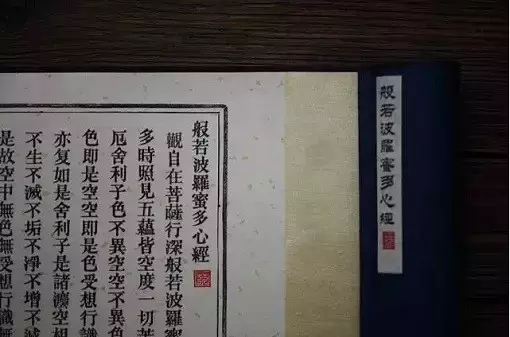 般若波羅蜜多心經
般若波羅蜜多心經
觀自在菩薩行深般若波羅蜜
多時照見五蘊皆空度一切苦
厄舍利子色不異空空不異色
色即是空空即是色受想行識
亦复如是舍利子是諸灋空相
不生不滅不垢不淨不增不減
是故空中無色無受想行識無